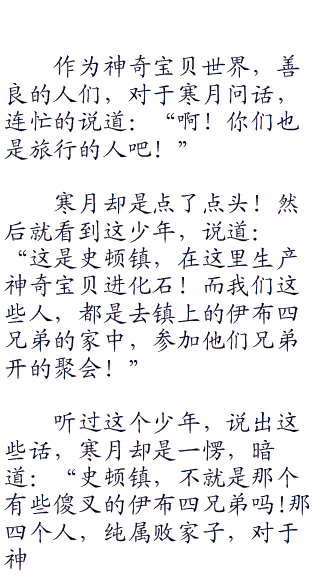 作为神奇宝贝世界，善
良的人们，对于寒月问话，
连忙的说道：“啊！你们也
是旅行的人吧！”
寒月却是点了点头！然
后就看到这少年，说道：
“这是史顿镇，在这里生产
神奇宝贝进化石！而我们这
些人，都是去镇上的伊布四
兄弟的家中，参加他们兄弟
开的聚会！”
听过这个少年，说出这
些话，寒月却是一愣，暗
道：“史顿镇，不就是那个
有些傻叉的伊布四兄弟吗!那
四个人，纯属败家子，对于
神